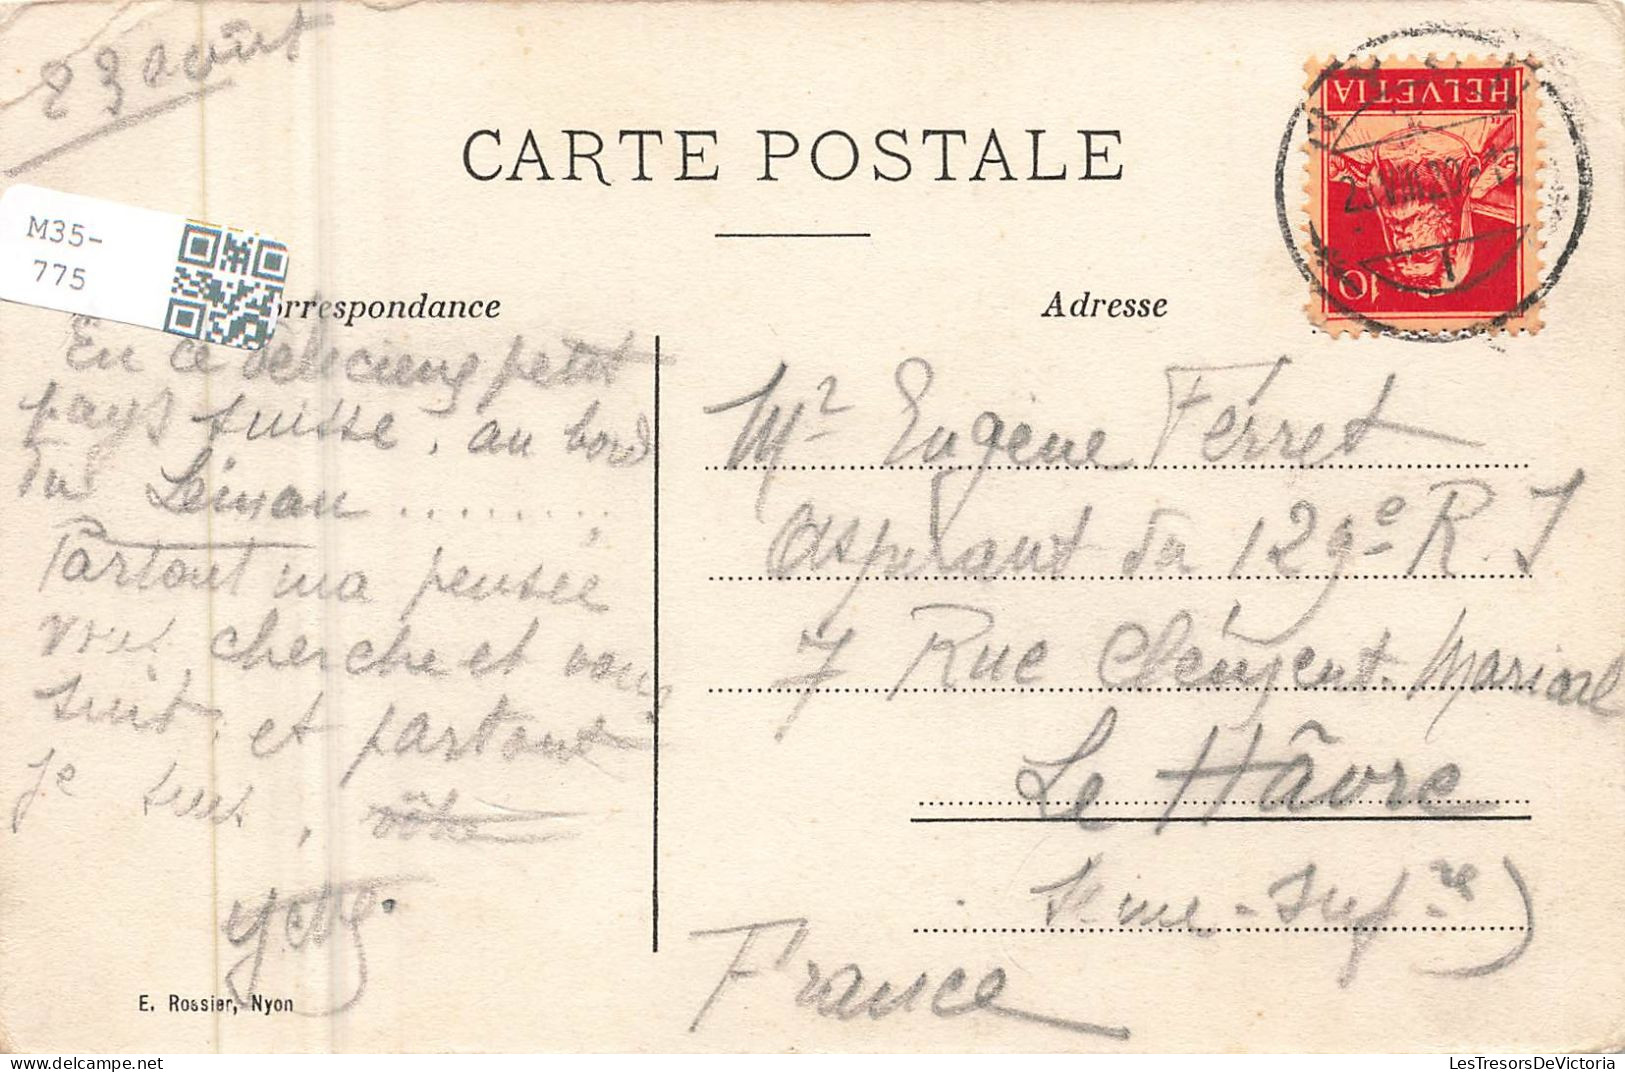 23 août
CARTE POSTALE
HELVETIA
10
M35-
775
orrespondance
Adresse
En ce délicieux petit
pays suisse, au bord
du Léman ........,
Partout ma pensée
vous cherche et vous
suit, et partout
je suis, vôtre
Mr Eugène Ferret
Aspirant du 129e R. I
7 Rue Clément-Marical
Le Hâvre
Seine-Infre)
France
E. Rossier, Nyon
LesTresorsDeVictoria